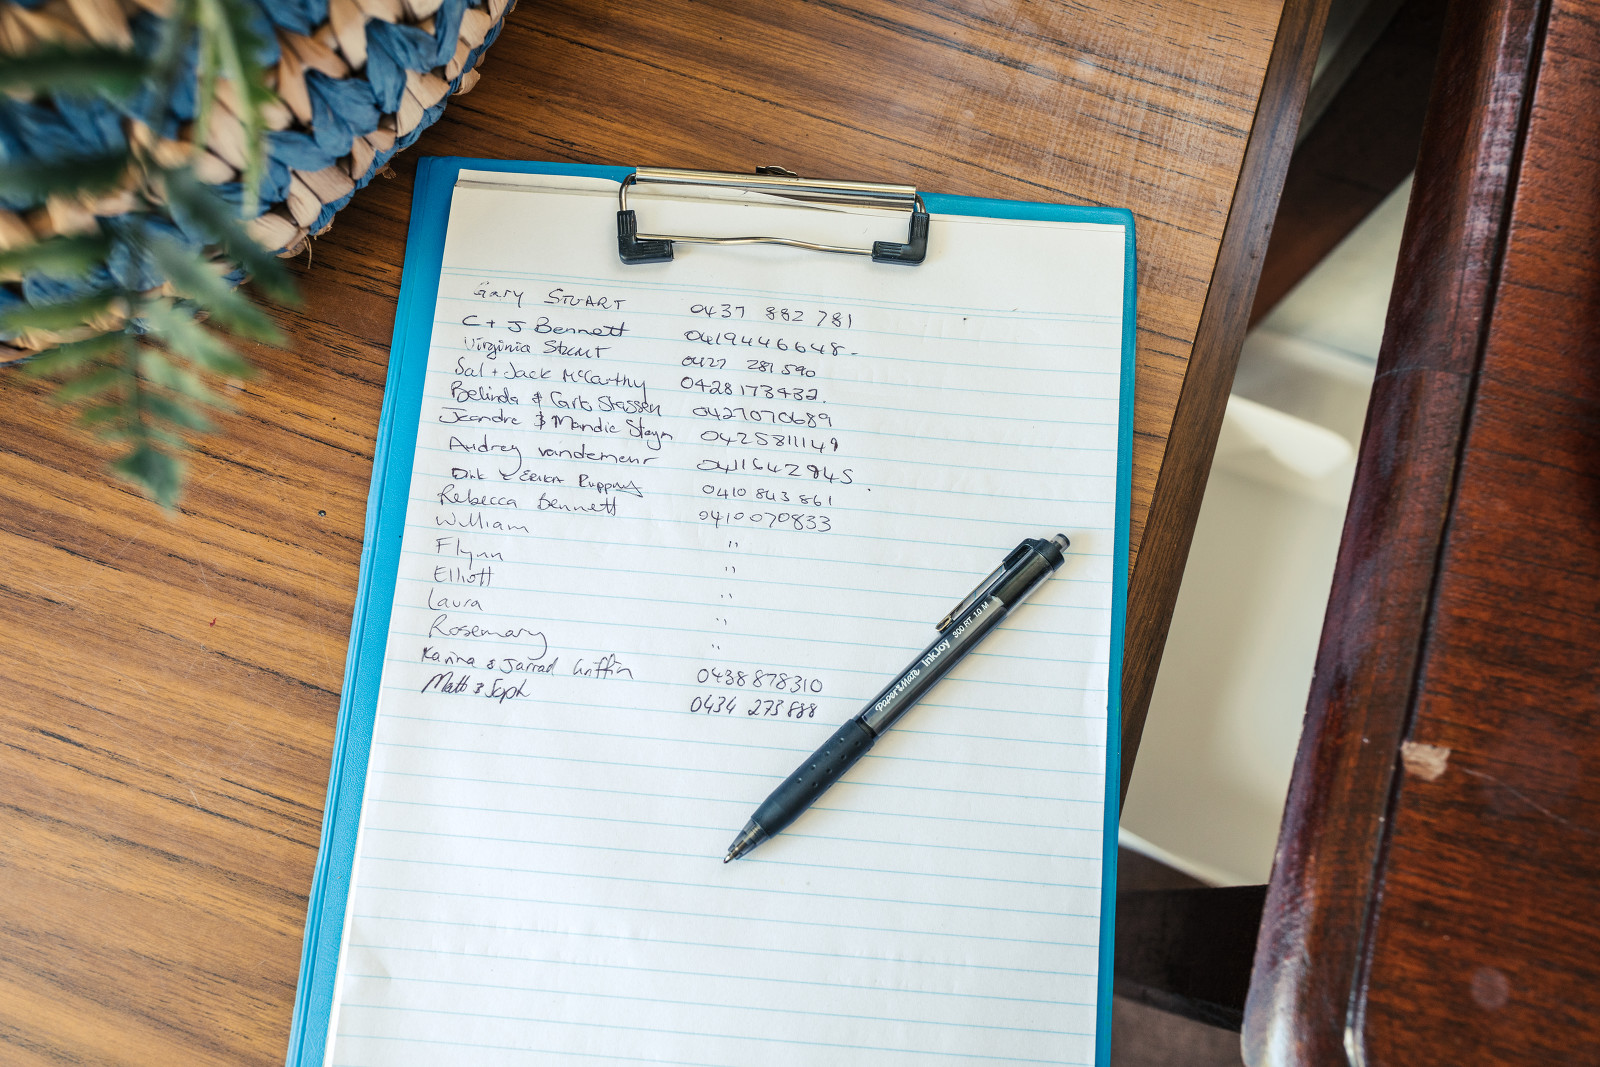 Gary STUART 0437 882 781
C + J Bennett 0419446648.
Virginia Stuart 0427 281 590
Sal + Jack McCarthy 0428173432.
Belinda & Carlo Stassen 0427070689
Jeandre & Mandie Steyn 0425811149
Audrey vandemeur 0411642945.
Dirk & Erika 0410 843 861
Rebecca Bennett 0410070833
William "
Flynn "
Elliott "
Laura "
Rosemary "
Karina & Jarrad Griffin 0438878310
Matt & Soph 0434 273 888
Paper Mate InkJoy 300 RT 1.0 M